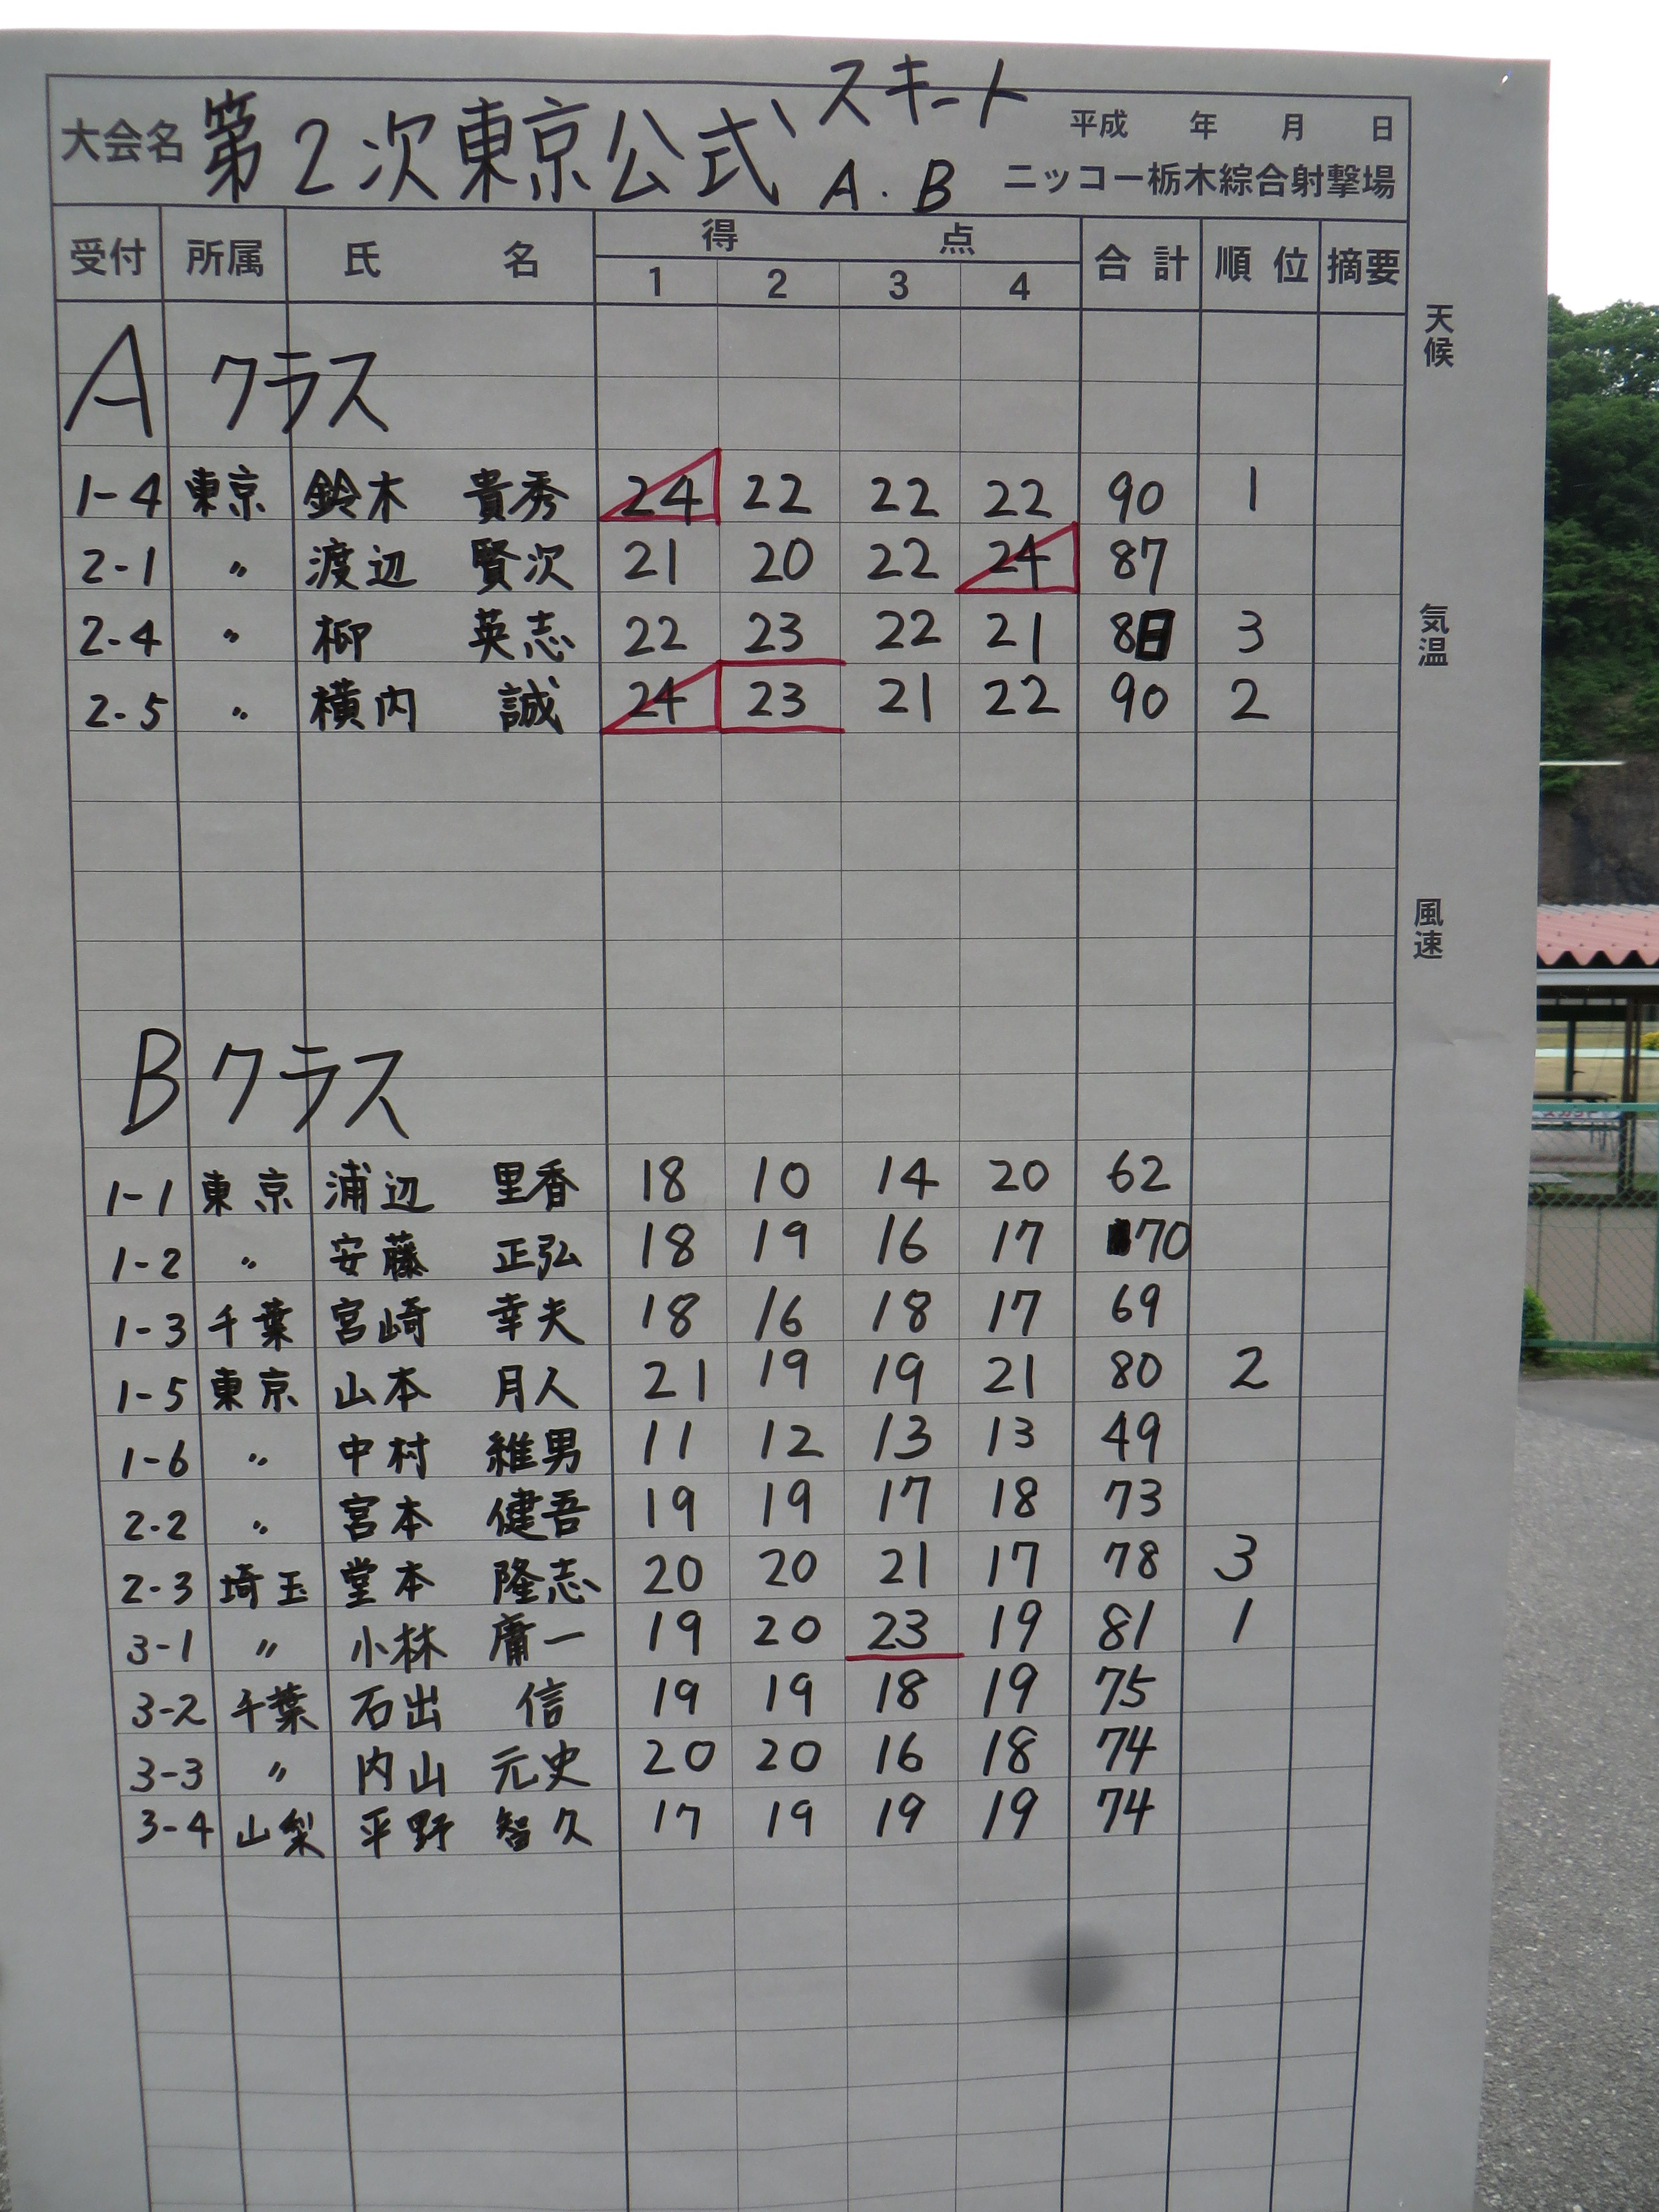 スキート
大会名 第2次東京公式 A.B 平成 年 月 日
ニッコー栃木綜合射撃場
受付 所属 氏 名 得 点 合計 順位 摘要
1 2 3 4
天候
A クラス
1-4 東京 鈴木 貴秀 24 22 22 22 90 1
2-1 〃 渡辺 賢次 21 20 22 24 87
気温
2-4 〃 柳 英志 22 23 22 21 88 3
2-5 〃 横内 誠 24 23 21 22 90 2
風速
B クラス
1-1 東京 浦辺 里香 18 10 14 20 62
1-2 〃 安藤 正弘 18 19 16 17 70
1-3 千葉 宮崎 幸夫 18 16 18 17 69
1-5 東京 山本 月人 21 19 19 21 80 2
1-6 〃 中村 雅男 11 12 13 13 49
2-2 〃 宮本 健吾 19 19 17 18 73
2-3 埼玉 堂本 隆志 20 20 21 17 78 3
3-1 〃 小林 庸一 19 20 23 19 81 1
3-2 千葉 石出 信 19 19 18 19 75
3-3 〃 内山 元史 20 20 16 18 74
3-4 山梨 平野 智久 17 19 19 19 74